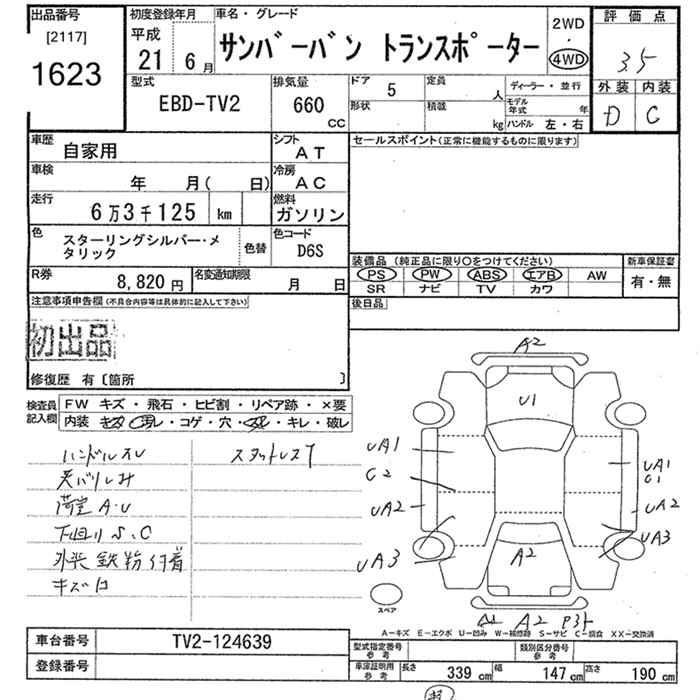 出品番号
[2117]
1623
初度登録年月
平成
21 6月
車名・グレード
サンバーバン トランスポーター
2WD
・
4WD
評価点
3.5
外装 内装
D C
型式
EBD-TV2
排気量
660
CC
ドア 5
定員 人
形状
積載 kg
ディーラー・並行
モデル年式 年
ハンドル 左・右
車歴
自家用
シフト
AT
車検
年 月( 日)
冷房
AC
走行
6万3千125 km
燃料
ガソリン
色
スターリングシルバー・メ
タリック
色替
色コード
D6S
R券
8,820円
名変通知期限
月 日
セールスポイント(正常に機能するものに限ります)
装備品 (純正品に限り○をつけてください)
PS PW ABS エアB AW
SR ナビ TV カワ
新車保証書
有・無
注意事項申告欄(不具合内容等は具体的に記入して下さい)
初出品
修復歴 有〔箇所 〕
後日品
検査員
記入欄
FW キズ・飛石・ヒビ割・リペア跡・×要
内装 キズ・汚レ・コゲ・穴・スレ・キレ・破レ
ハンドルスレ
天バリしみ
荷室A・U
下回りS、C
外装鉄粉付着
A2
U1
UA1
C2
UA2
UA3
UA1
C1
UA2
UA3
A2
A2
スペア
A-キズ E-エクボ U-凹み W-補修跡 S-サビ C-腐食 XX-交換済
車台番号 TV2-124639
登録番号
型式指定番号
参考
類別区分番号
参考
車庫証明用
参考
長さ 339 cm
幅 147 cm
高さ 190 cm